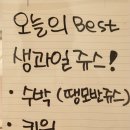 오늘의 Best
생과일쥬스!
· 수박 (땡모반쥬스)
· 키위